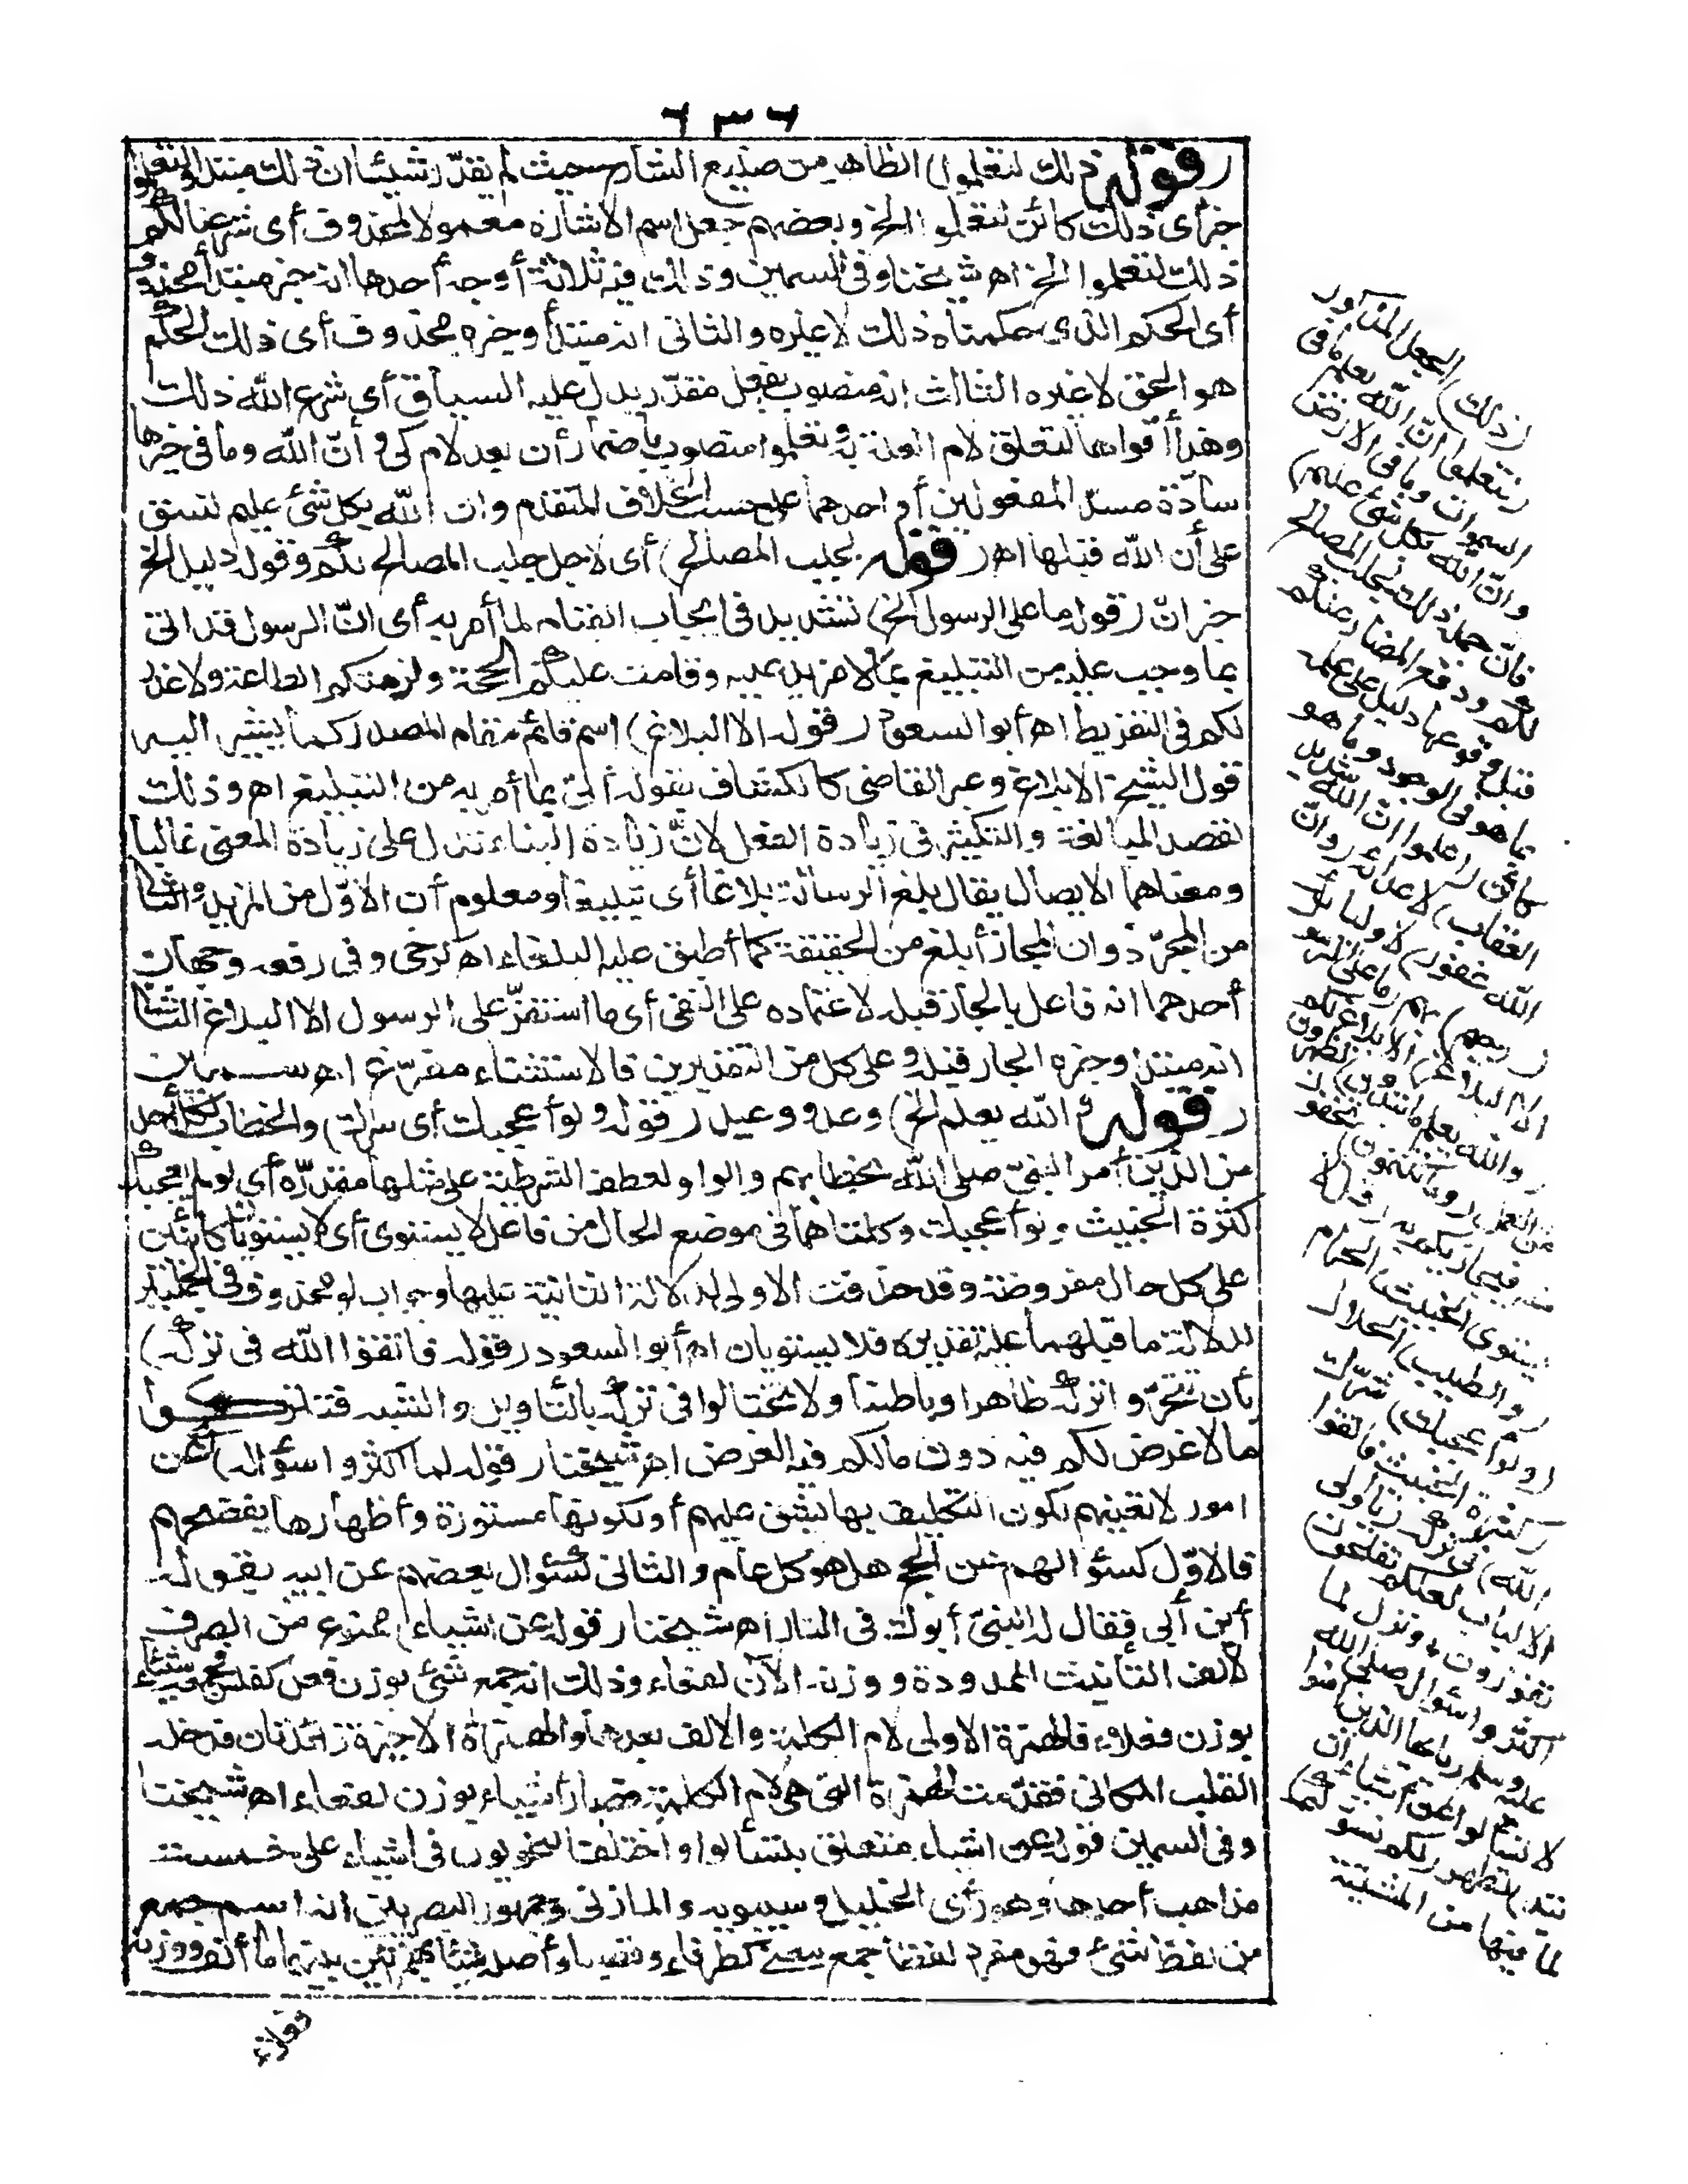 ٦٣٦
(قوله ذلك لتعلموا) الظاهر من صنيع الشارح حيث لم يقدّر شيئا ان ذلك مبتدا ولتعلموا
خبر أى ذلك كائن لتعلموا الخ وبعضهم جعل اسم الاشارة معمولا لمحذوف أى شرعنا لكم
ذلك لتعلموا الخ اه شيخنا وفى السمين وذلك فيه ثلاثة أوجه أحدها انه خبر مبتدأ محذوف
أى الحكم الذى حكمناه ذلك لا غيره والثانى انه مبتدأ وخبره محذوف أى ذلك الحكم
هو الحق لا غيره الثالث انه منصوب بفعل مقدّر يدل عليه السياق أى شرع الله ذلك
وهذا أقواها لتعلق لام العلة به وتعلموا منصوب باضمار أن بعد لام كى وأنّ الله وما فى خبرها
سادّة مسدّ المفعولين أو احدهما على حسب الخلاف المتقدم وان الله بكل شئ عليم نسق
على أن الله قبلها اه (قوله لجلب المصالح) أى لاجل جلب المصالح لكم وقوله دليل الخ
خبر انّ (قوله ما على الرسول الخ) تشديد فى ايجاب القيام لما أمر به أى انّ الرسول قد اتى
بما وجب عليه من التبليغ بما لا مزيد عليه وقامت عليكم الحجة ولزمتكم الطاعة ولا عذر
لكم فى التفريط اه أبو السعود (قوله الا البلاغ) اسم قائم مقام المصدر كما يشير اليه
قول الشيخ الابلاغ وعبر القاضى كالكشاف بقوله أتى بما أمر به من التبليغ اه وذلك
لقصد المبالغة والتكثير فى زيادة الفعل لانّ زيادة البناء تدل على زيادة المعنى غالبا
ومعناهما الايصال يقال بلغ الرسالة بلاغا أى تبليغا ومعلوم أن الاوّل من المزيد والثانى
من المجرّد وان المجاز أبلغ من الحقيقة كما أطبق عليه البلغاء اه كرخى وفى رفعه وجهان
أحدهما انه فاعل بالجار قبله لاعتماده على النفى أى ما استقرّ على الرسول الا البلاغ الثانى
انه مبتدا وخبره الجار قبله وعلى كل من التقديرين فالاستثناء مفرّغ اه سمين
(قوله والله يعلم الخ) وعد ووعيد (قوله ولو أعجبك أى سرك) والخطاب لكل أحد
من الذين أمر النبىّ صلى الله بخطابهم والواو لعطف الشرطية على مثلها مقدّرة أى لو لم يعجبك
كثرة الخبيث ولو أعجبك وكلتاهما فى موضع الحال من فاعل لا يستوى أى لا يستويان كائنين
على كل حال مفروضة وقد حذفت الاولى لدلالة الثانية عليها وجواب لو محذوف فى الجملتين
لدلالة ما قبلهما عليه تقديره فلا يستويان اه أبو السعود (قوله فاتقوا الله فى تركه)
بأن تتحرّوا تركه ظاهرا وباطنا ولا تحتالوا فى تركه بالتأويل والشبه فتتركوا
ما لا غرض لكم فيه دون ما لكم فيه الغرض اه شيخنا (قوله لما اكثروا سؤاله) أى عن
امور لا تعنيهم لكون التكليف بها يشق عليهم أو لكونها مستورة واظهارها يفضحهم
فالاوّل كسؤالهم عن الحج هل هو كل عام والثانى كسؤال بعضهم عن ابيه بقوله
أين أبى فقال له النبىّ أبوك فى النار اه شيخنا (قوله عن اشياء) ممنوع من الصرف
لالف التأنيث الممدودة ووزنه الآن لفعاء وذلك انه جمع شئ بوزن فعل كفلس فجمع شيئاء
بوزن فعلاء فالهمزة الاولى لام الكلمة والالف بعدها والهمزة الاخيرة زائدتان فدخله
القلب المكانى فقدّمت الهمزة التى هى لام الكلمة فصار أشياء بوزن لفعاء اه شيخنا
وفى السمين قوله عن اشياء متعلق بتسألوا واختلف النحويون فى اشياء على خمسة
مذاهب أحدها وهو رأى الخليل وسيبويه والمازنى وجمهور البصريين انه اسم جمع
من لفظ شئ فهو مفرد لفظا جمع معنى كطرفاء وقصباء وأصله شيئاء بهمزتين بينهما ألف ووزنه
فعلاء
(ذلك) الجعل المذكور
(لتعلموا انّ الله يعلم ما فى
السموات وما فى الارض
وانّ الله بكل شئ عليم)
فانّ جعله ذلك لجلب المصالح
لكم ودفع المضار عنكم
قبل وقوعها دليل على علمه
بما هو فى الوجود وما هو
كائن (اعلموا انّ الله شديد
العقاب) لاعدائه (وانّ
الله غفور) لاوليائه
(رحيم) بهم (ما على الرسول
الا البلاغ) الابلاغ لكم
(والله يعلم ما تبدون) تظهرون
من العمل (وما تكتمون) تخفون
منه فيجازيكم به (قل لا
يستوى الخبيث) الحرام
(والطيب) الحلال
(ولو أعجبك) سرّك
(كثرة الخبيث فاتقوا
الله) فى تركه (يا أولى
الالباب لعلكم تفلحون)
تفوزون * ونزل لما
اكثروا سؤاله صلى الله
عليه وسلم (يا ايها الذين آمنوا
لا تسألوا عن أشياء ان
تبد) تظهر (لكم تسؤكم)
لما فيها من المشقة